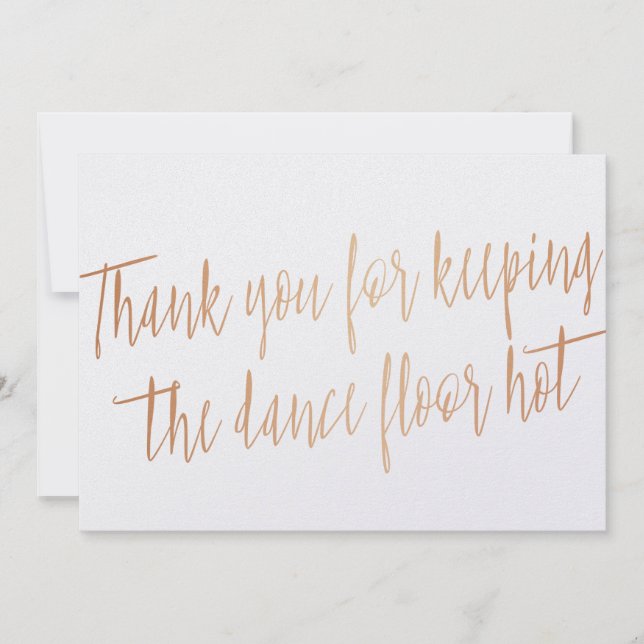 Thank you for keeping
the dance floor hot